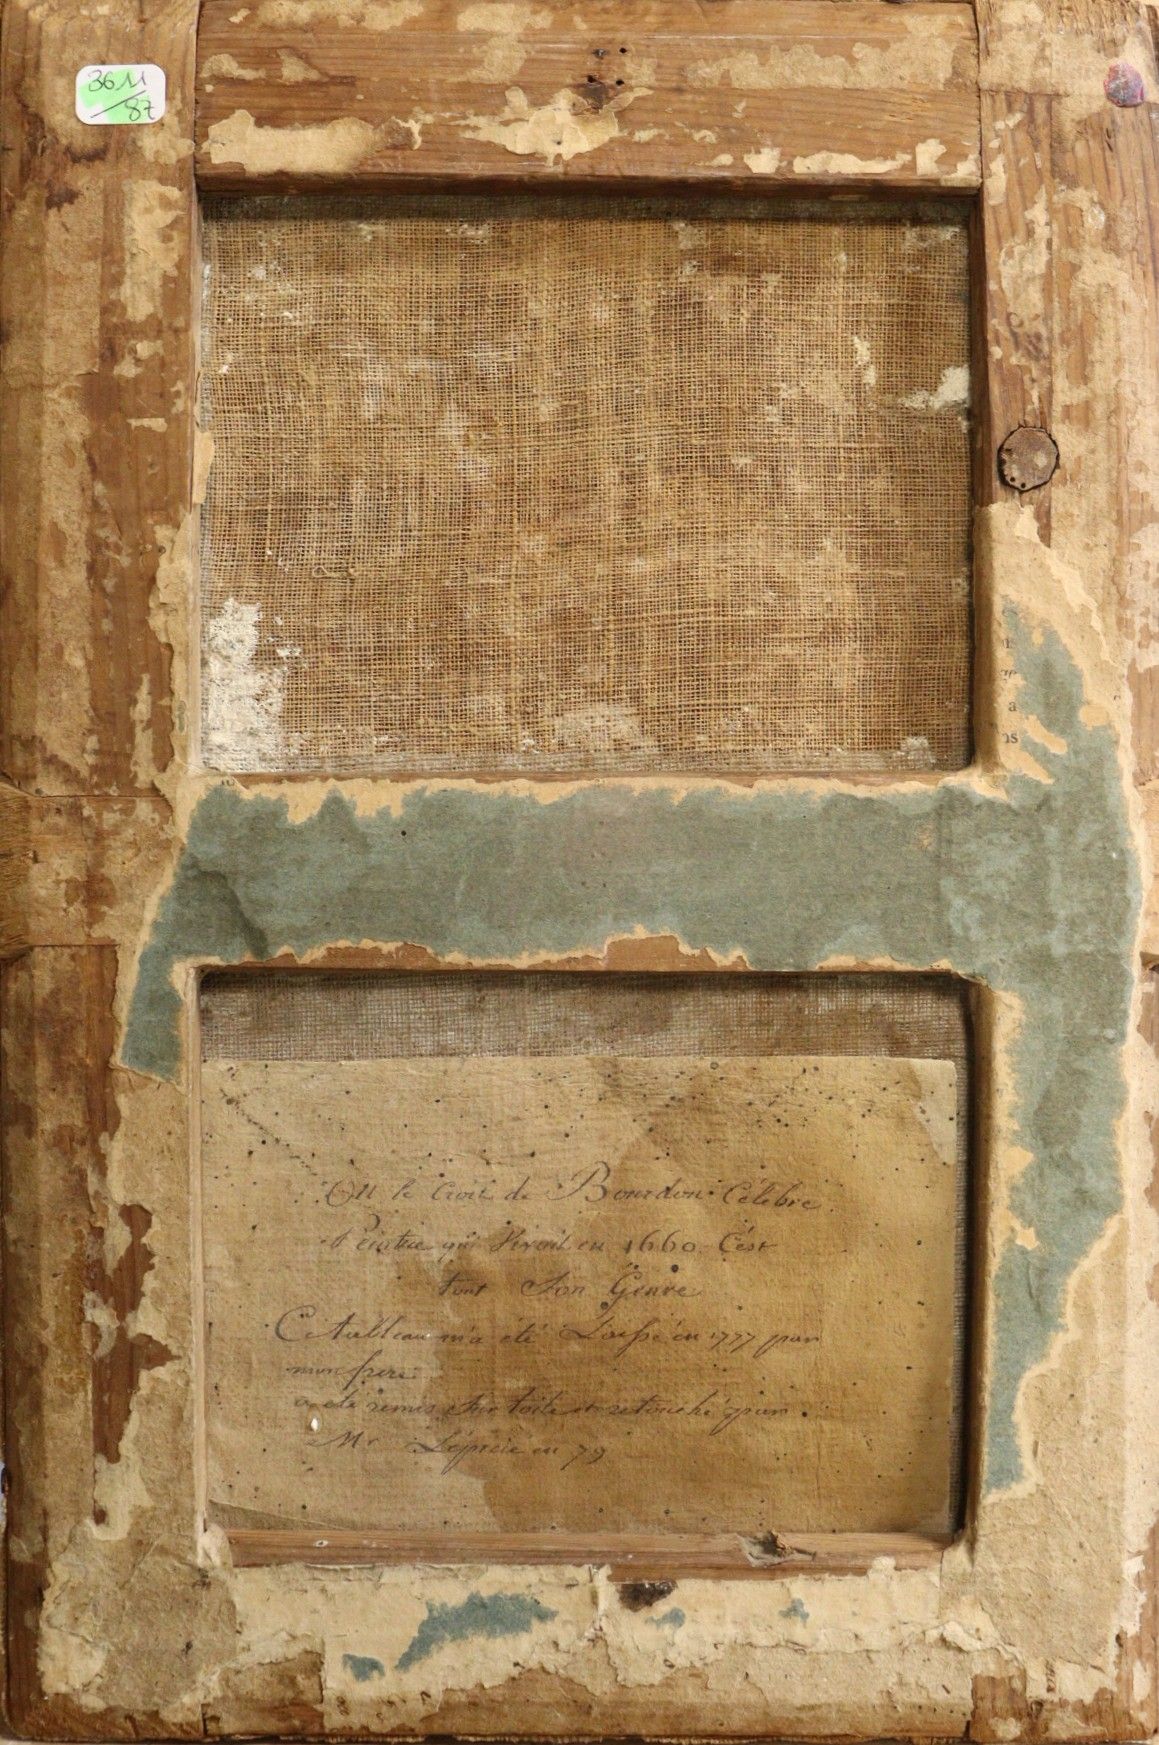 3611
/87
On le Croit de Bourdon Célèbre
Peintre qui Vivoit en 1660. C'est
tout Son Genre
Ce tableau m'a été Laissé en 1777 par
mon frere.
a été remis Sur toile et retouché par
Mr en 79
a